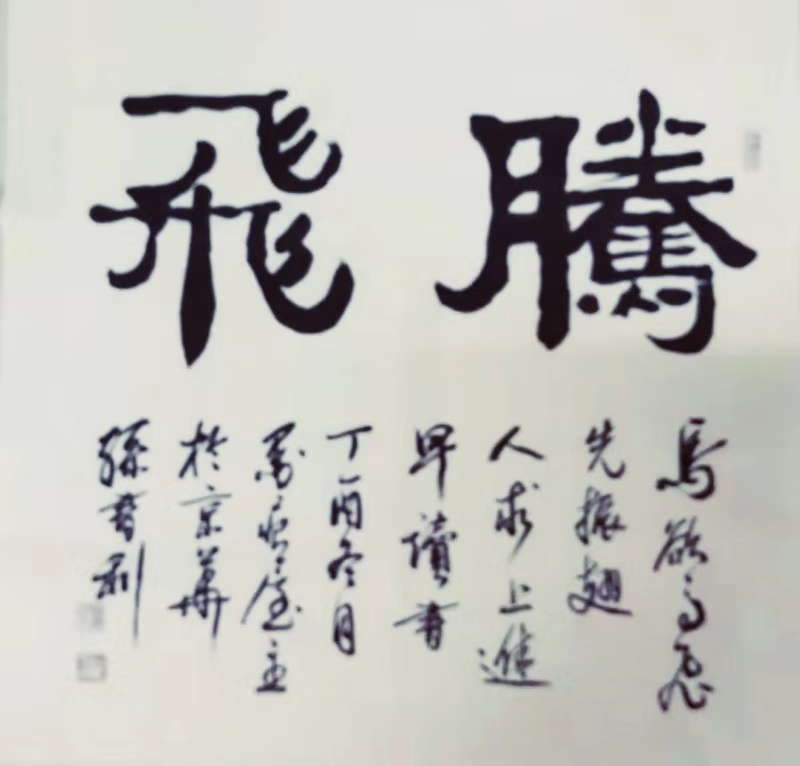 騰飛
鳥欲高飛
先振翅
人求上進
早讀書
丁酉冬月
主
於京華
孫書利